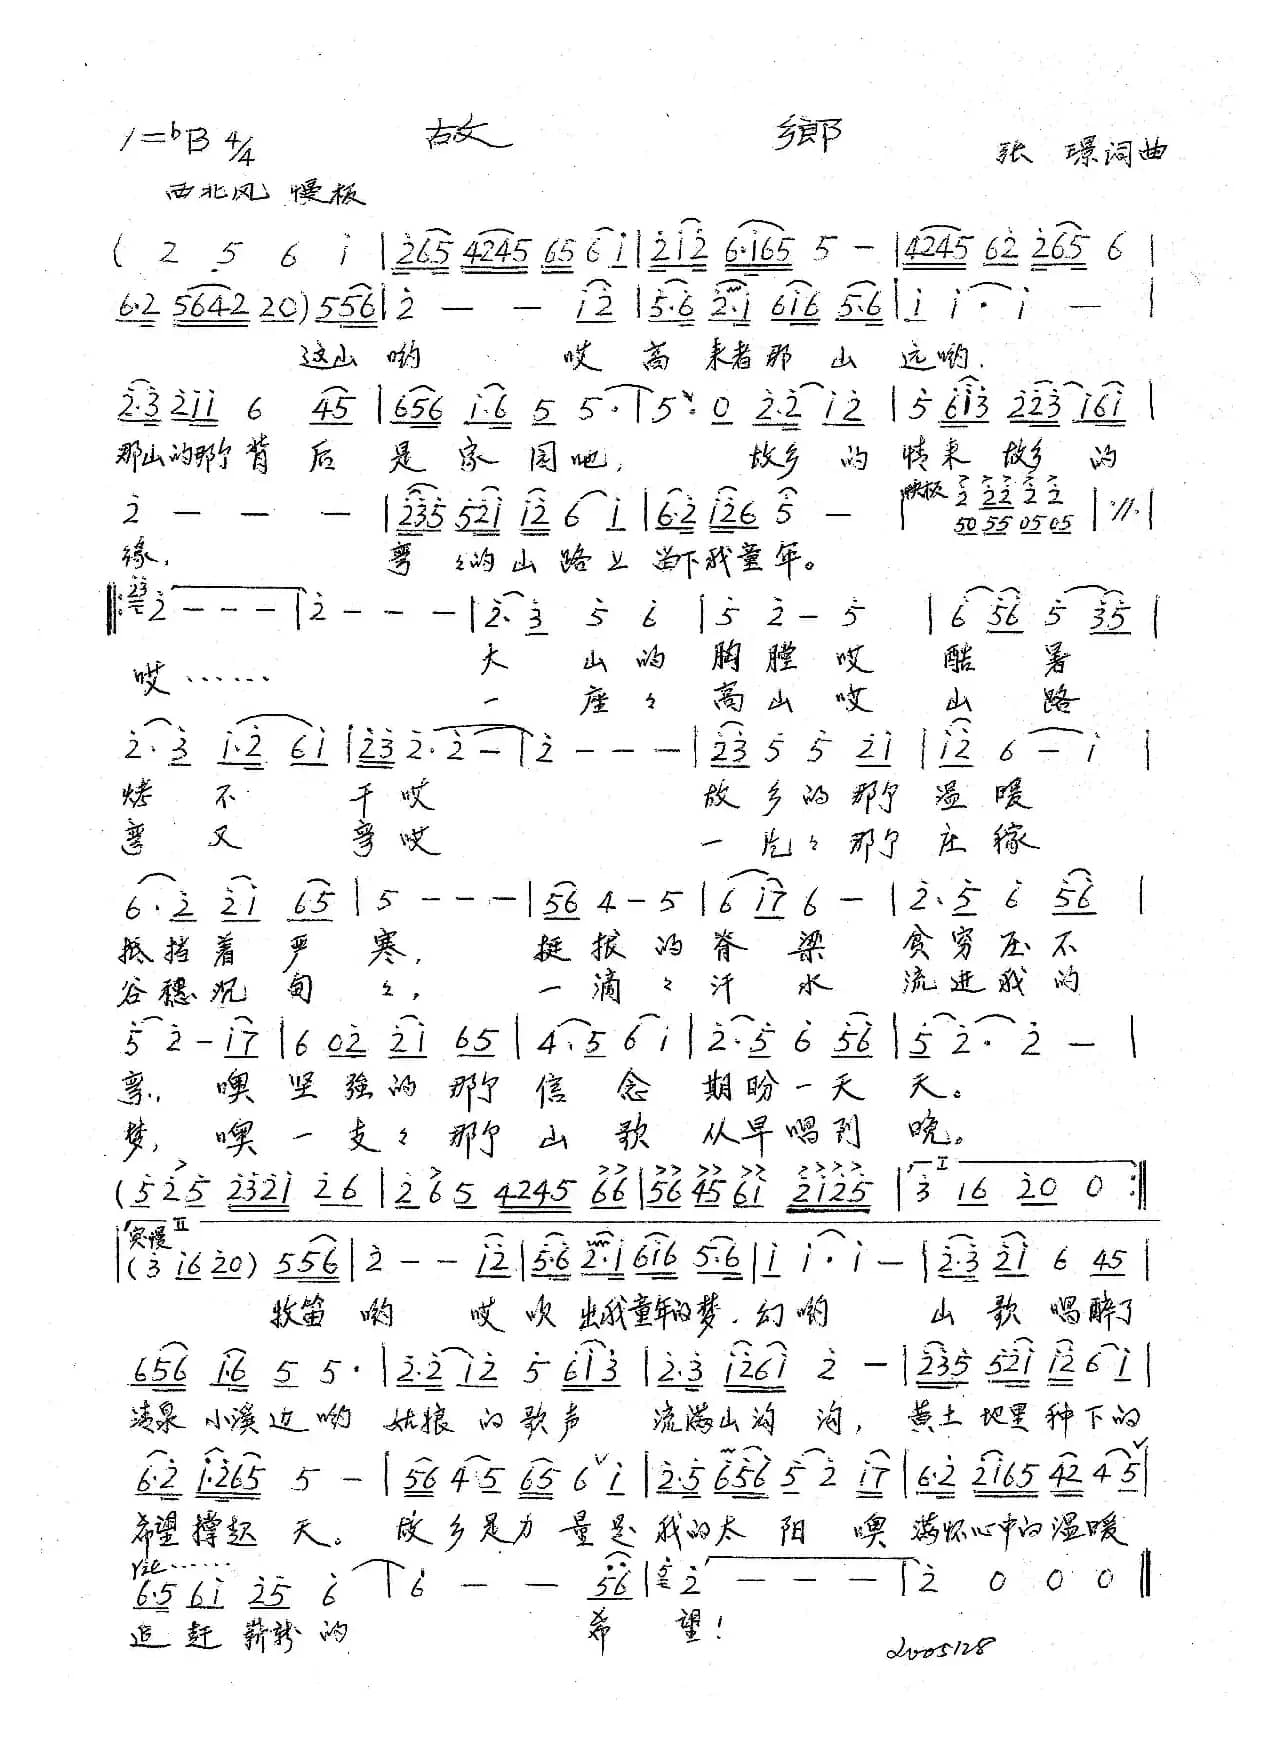 1=bB 4/4 故 鄉 张 璟 词曲
西北风 慢板
( 2 5 6 i | 265 4245 65 6 i | 2i2 6·i65 5 — | 4245 62 265 6 |
6·2 5642 20) 556 | 2 — — i2 | 5·6 2·i 6i6 5·6 | i i · i — |
这山哟 哎 高 来看那 山 远哟.
2·3 2ii 6 45 | 656 i·6 5 5· | 5 0 2·2 i2 | 5 6i3 223 i6i |
那山的那个背 后 是 家 园吔, 故乡 的 情来 故乡 的
2 — — — | 235 52i i2 6 i | 6·2 i26 5 — | 快板 2 22 2 2 | ·//·|
50 55 05 05
缘, 弯 々的 山 路 上 留下我童年。
‖: 2 — — — | 2 — — — | 2·3 5 6 | 5 2 — 5 | 6 56 5 35 |
哎 ······ 大 山 的 胸 膛 哎 酷 暑
一 座 々 高 山 哎 山 路
2·3 i·2 6i | 23 2·2 — | 2 — — — | 23 5 5 2i | i2 6 — i |
烤 不 干 哎 故 乡 的 那个 温 暖
弯 又 弯 哎 一 片 々 那个 庄 稼
6·2 2i 65 | 5 — — — | 56 4 — 5 | 6 i7 6 — | 2·5 6 56 |
抵挡 着 严 寒, 挺 拔 的 脊 梁 贫 穷 压 不
谷穗 沉 甸 々, 一 滴 々 汗 水 流 进 我 的
5 2 — i7 | 6 02 2i 65 | 4·5 6 i | 2·5 6 56 | 5 2· 2 — |
弯, 噢 坚 强 的 那个 信 念 期 盼 一 天 天。
梦, 噢 一 支 々 那个 山 歌 从 早 唱 到 晚。
( 5 2 5 232i 26 | 2 6 5 4245 66 | 56 45 6i 2i25 | I 3 i6 20 0 :‖
突慢 II
(3 i6 20) 556 | 2 — — i2 | 5·6 2·i 6i6 5·6 | i i · i — | 2·3 2i 6 45 |
牧笛 哟 哎 吹 出我童年的梦. 幻 哟 山 歌 唱 醉了
656 i·6 5 5 · | 2·2 i2 5 6i3 | 2·3 i26i 2 — | 235 52i i2 6 i |
清泉 小溪 边 哟 姑娘 的 歌声 流满山沟 沟, 黄土 地里 种 下的
6·2 i·265 5 — | 56 4 5 65 6 i | 2·5 656 5 2 i7 | 6·2 2i65 42 4 5 |
希望 撑起 天。 故 乡 是力 量是 我的太 阳 噢 满怀心中的温暖
6·5 6i 25 6 | 6 — — 56 | 2 — — — | 2 0 0 0 ‖
追 赶 崭新的 希 望!
2005128